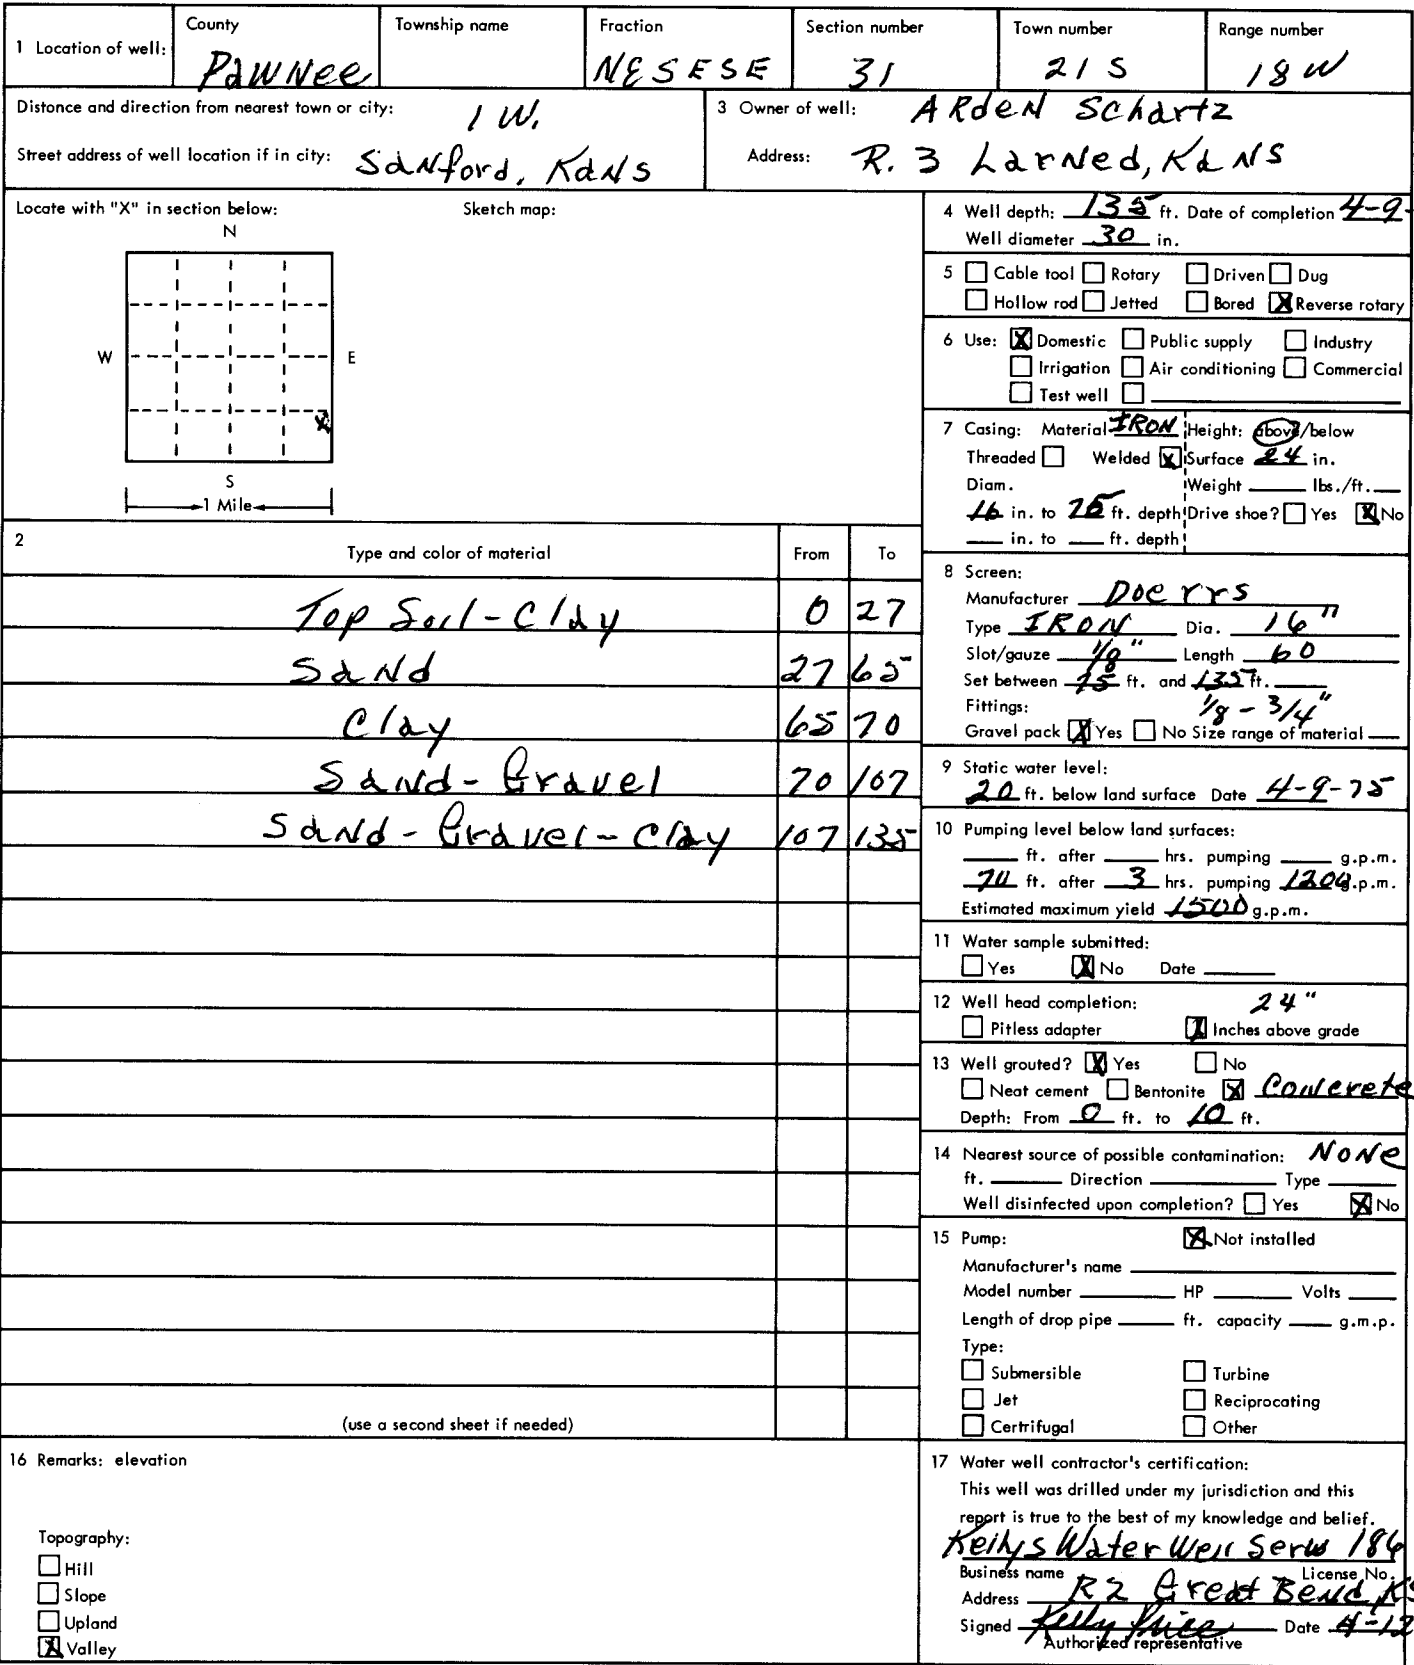 1 Location of well: County Township name Fraction Section number Town number Range number
Pawnee NESESE 31 21 S 18 W
Distonce and direction from nearest town or city: 1 W. 3 Owner of well: Arden Schartz
Street address of well location if in city: Sanford, Kans Address: R. 3 Larned, Kans
Locate with "X" in section below: Sketch map:
N
W E
X
S
1 Mile
2 Type and color of material From To
Top Soil - Clay 0 27
Sand 27 65
Clay 65 70
Sand - Gravel 70 107
Sand - Gravel - Clay 107 135
(use a second sheet if needed)
16 Remarks: elevation
Topography:
Hill
Slope
Upland
X Valley
4 Well depth: 135 ft. Date of completion 4-9-
Well diameter 30 in.
5 Cable tool Rotary Driven Dug
Hollow rod Jetted Bored X Reverse rotary
6 Use: X Domestic Public supply Industry
Irrigation Air conditioning Commercial
Test well
7 Casing: Material IRON Height: above/below
Threaded Welded X Surface 24 in.
Diam. Weight lbs./ft.
16 in. to 75 ft. depth Drive shoe? Yes X No
in. to ft. depth
8 Screen:
Manufacturer Doerrs
Type IRON Dia. 16"
Slot/gauze 1/8" Length 60
Set between 75 ft. and 135 ft.
Fittings: 1/8 - 3/4"
Gravel pack X Yes No Size range of material
9 Static water level:
20 ft. below land surface Date 4-9-75
10 Pumping level below land surfaces:
ft. after hrs. pumping g.p.m.
70 ft. after 3 hrs. pumping 1200 g.p.m.
Estimated maximum yield 1500 g.p.m.
11 Water sample submitted:
Yes X No Date
12 Well head completion: 24"
Pitless adapter X Inches above grade
13 Well grouted? X Yes No
Neat cement Bentonite X Concrete
Depth: From 0 ft. to 10 ft.
14 Nearest source of possible contamination: None
ft. Direction Type
Well disinfected upon completion? Yes X No
15 Pump: X Not installed
Manufacturer's name
Model number HP Volts
Length of drop pipe ft. capacity g.m.p.
Type:
Submersible Turbine
Jet Reciprocating
Certrifugal Other
17 Water well contractor's certification:
This well was drilled under my jurisdiction and this
report is true to the best of my knowledge and belief.
Kellys Water Well Serv 186
Business name License No.
Address R2 Great Bend, KS
Signed Kelly Price Date 4-12
Authorized representative